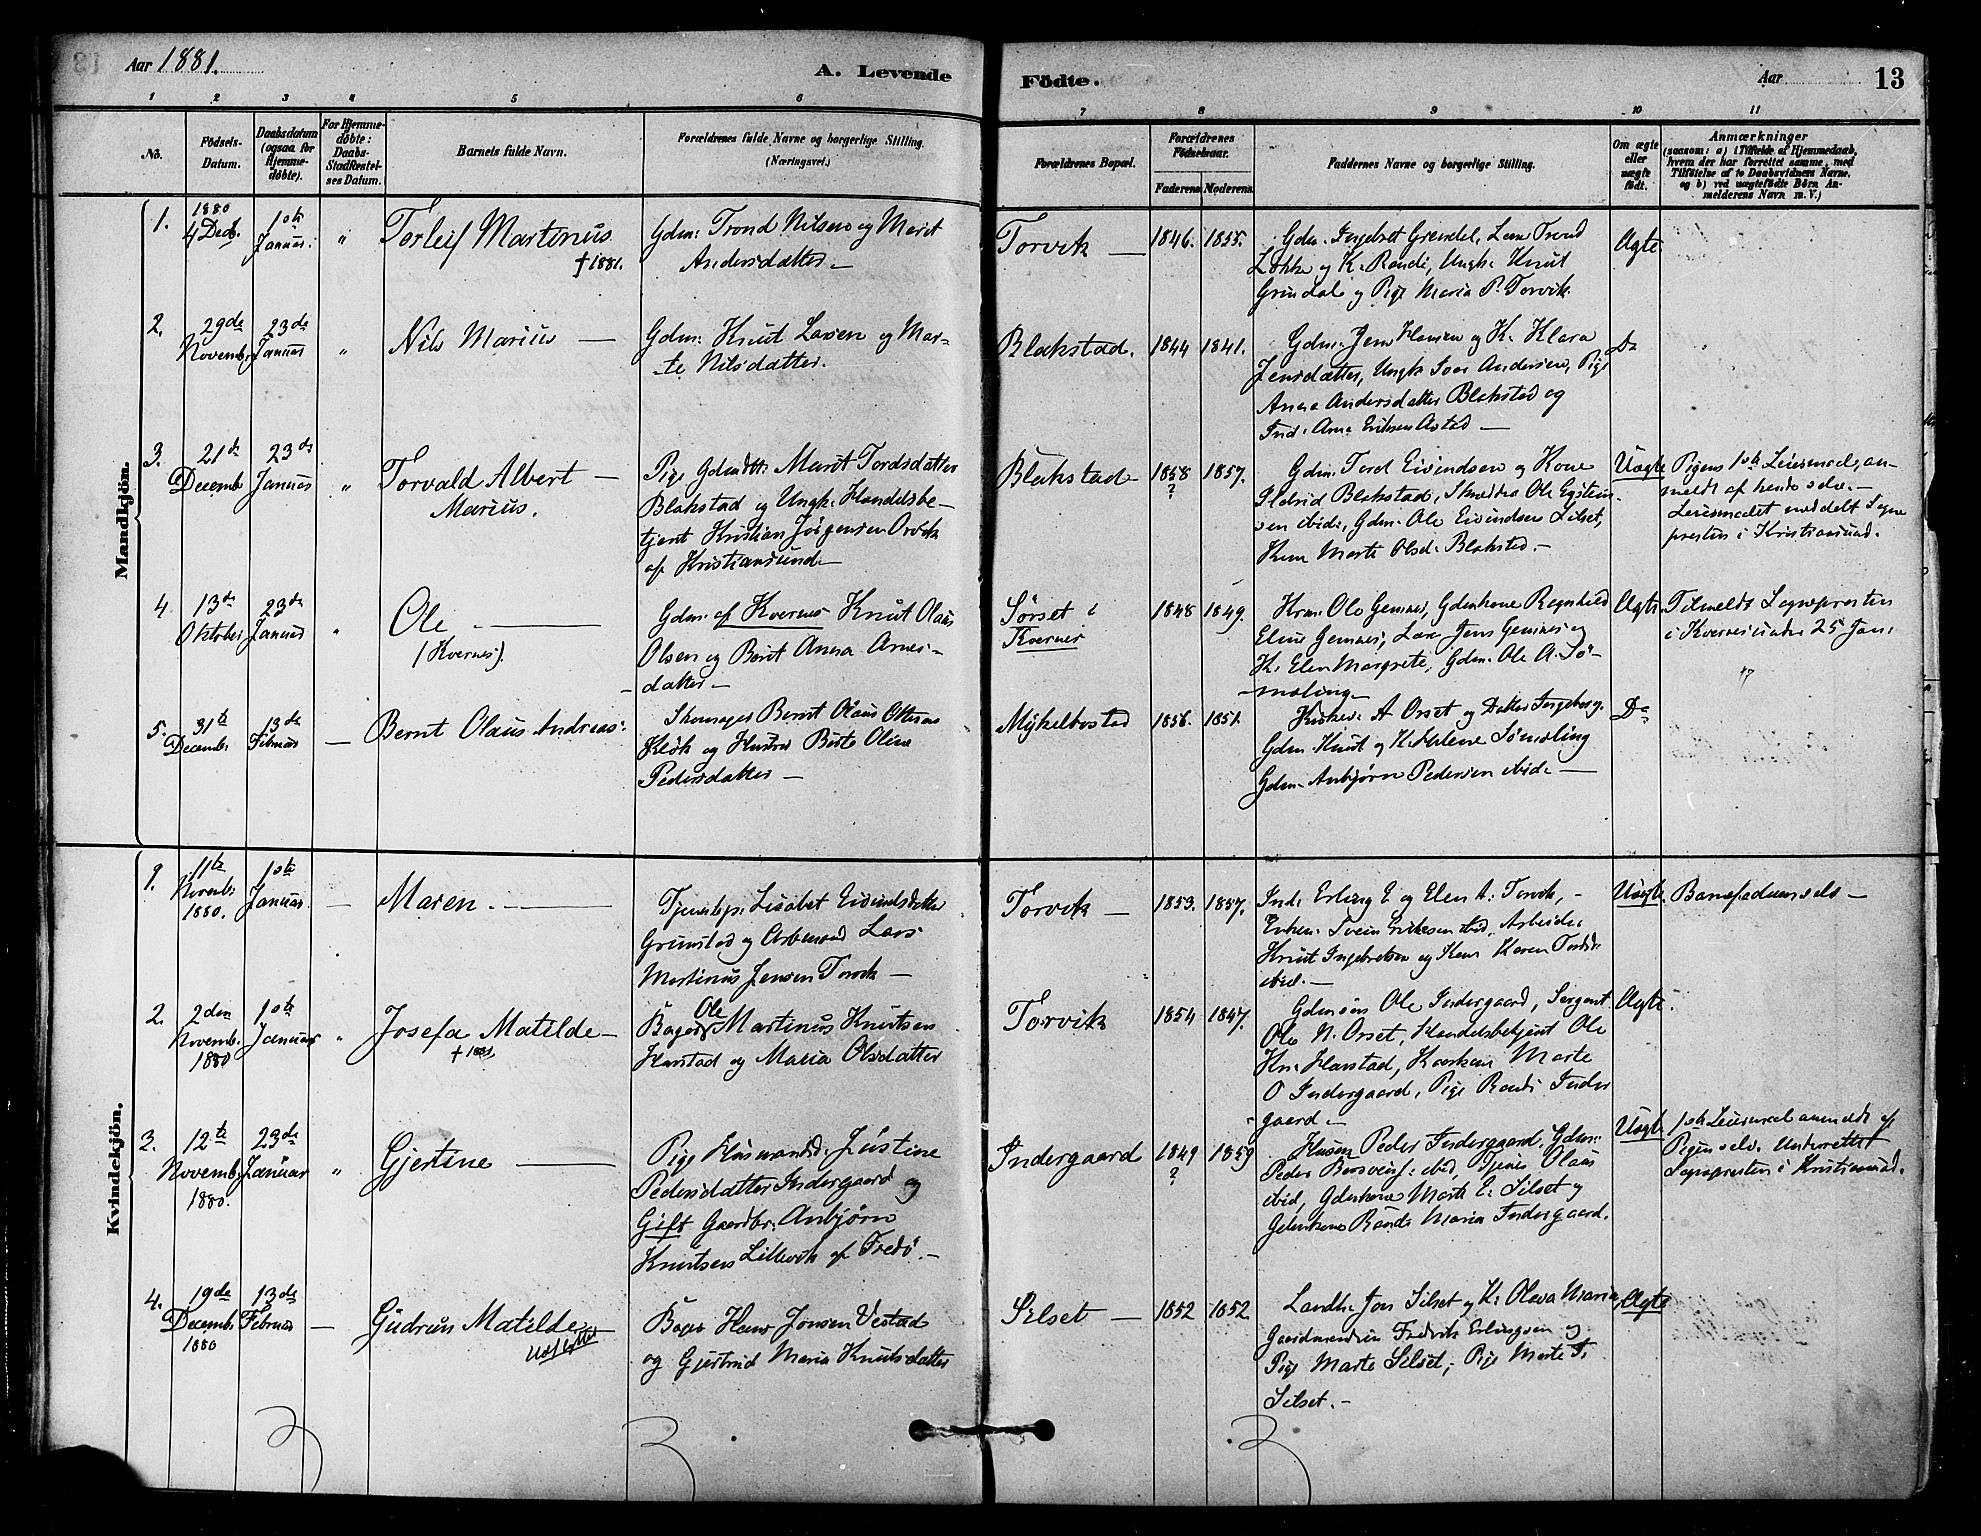 Aar 1881.
A. Levende
Födte.
Aar
13
1 2 3 4 5 6 7 8 9 10 11
No.
Födsels-
Datum.
Daabsdatum
(ogsaa for
Hjemme-
döbte).
For Hjemme-
döbte:
Daabs-
Stadfæstel-
ses Datum.
Barnets fulde Navn.
Forældrenes fulde Navne og borgerlige Stilling.
(Næringsvei.)
Forældrenes Bopæl.
Forældrenes
Födselsaar.
Faderens. Moderens.
Faddernes Navne og borgerlige Stilling.
Om ægte
eller
uægte
födt.
Anmærkninger
(saasom: a) i Tilfælde af Hjemmedaab,
hvem der har forrettet samme, med
Tilföielse af to Daabsvidners Navne,
og b) ved uægtefödte Börn An-
melderens Navn m. V.)
Mandkjön.
1.
1880
4 Decb.
1ste
Januar.
"
Torleif Martinus
† 1881.
Gdm: Trond Nilsen og Marit
Andersdatter —
Torvik —
1846. 1855.
Gdm. Ingebret Grindal, Lem Trond
Løkke og K. Randi, Ungk. Knut
Grindal og Pige Maria P. Torvik.
Ægte
2.
29de
Novemb.
23de
Januar
"
Nils Marius —
Gdm: Knut Larsen og Mar-
te Nilsdatter.
Blakstad.
1844 1841.
Gdm. Jens Hansen og K. Klara
Jensdatter, Ungk Andersen, Pige
Anne Andersdatter Blakstad og
Ind. Arne Eriksen Astad —
Do
3.
21de
Decemb
23de
Januar
"
Torvald Albert —
Marius.
Pige Gdmdtt. Marit Tordsdatter
Blakstad og Ungk. Handelsbe-
tjent Kristian Jørgensen Orvik
af Kristiansund —
Blakstad
1858
?
1857.
Gdm: Tord Eivindsen og Kone
Blakstad, Ole Eystein-
sen ibid., Gdm: Ole Eivindsen Silset,
Marte Olsd. Blakstad. —
Uægte
Pigens 1ste Leiermaal, an-
meldt af hende selv. —
Leiermaalet meddelt Sogne
presten i Kristiansund.
4
13de
Oktober
23de
Januar
"
Ole —
(Kvernes).
Gdm: af Kvernes Knut Olaus
Olsen og Berit Anna Arnes-
datter —
Sørset i
Kvernes
1848 1849.
Ole Gemnes, Gdmkone Ragnhild
Eline Gemnes, Jens Gemnes og
K. Elen Margrete, Gdm. Ole A. Sø-
moling —
Ægte
Tilmeldt Sognepresten
i Kvernes 25 Jan.
5.
31te
Decemb.
13de
Februar
—
Bernt Olaus Andreas:
Skomager Bernt Olaus Ottesen
og Hustru Birte Oline
Pedersdatter —
Mykelbostad
1856. 1851.
A Orset og Datter Ingeborg.
Gdm. Knut og K. Helene Sømoling
Gdm. Anbjørn Pedersen ibid. —
Do
Kvindekjön.
1.
11te
Novemb:
1880.
1ste
Januar.
—
Maren. —
Tjenestep. Lisabet Eivindsdatter
Grimstad og Arbmand Lars
Martinus Jensen Torvik —
Torvik —
1853. 1857.
Ind. Erling E og Elen A. Torvik, —
Svein Eriksen ibid, Arbeider
Knut Ingebretsen og Karen Tordsd.
ibid. —
Uægte.
Barnefaderen selv —
2.
2den
Novemb.
1880
1ste
Januar
"
Josefa Matilde —
† 1881
Bager Ole Martinus Knutsen
Harstad og Maria Olsdatter
Torvik
1854 1847.
Gdmsøn Ole Indergaard, Sergent
Ole N. Orset, Handelsbetjent Ole
Kn. Harstad, Marte
O Indergaard, Pige Randi Inder
gaard —
Ægte.
3.
12te
Novemb.
1880.
23de
Januar
"
Gjertine —
Pige Husmandsd. Justine
Pedersdatter Indergaard og
Gift Gaardbr. Anbjørn
Knutsen Lillevik af Fredø. —
Indergaard
1849
?
1859
Husm Peder Indergaard. Gdm:
Peder ibid, Tjener Olaus
ibid, Gdmkone Marte E. Silset og
Gdmkone Randi Maria Indergaard.
Uægte
1ste Leiermaal anmeldt af
Pigen selv. Underrettet
Sognepresten i Kristiansund.
4.
19de
Decemb.
1880
13de
Februar
—
Gudrun Matilde
Bager Hans Jonsen Vestad
og Gjertrud Maria Knutsdatter
Silset —
1852 1852
Landh. Jon Silset og K. Oleva Maria,
Gaardmand Fredrik Erlingsen og
Pige Marte Silset, Pige Marte T.
Silset. —
Ægte